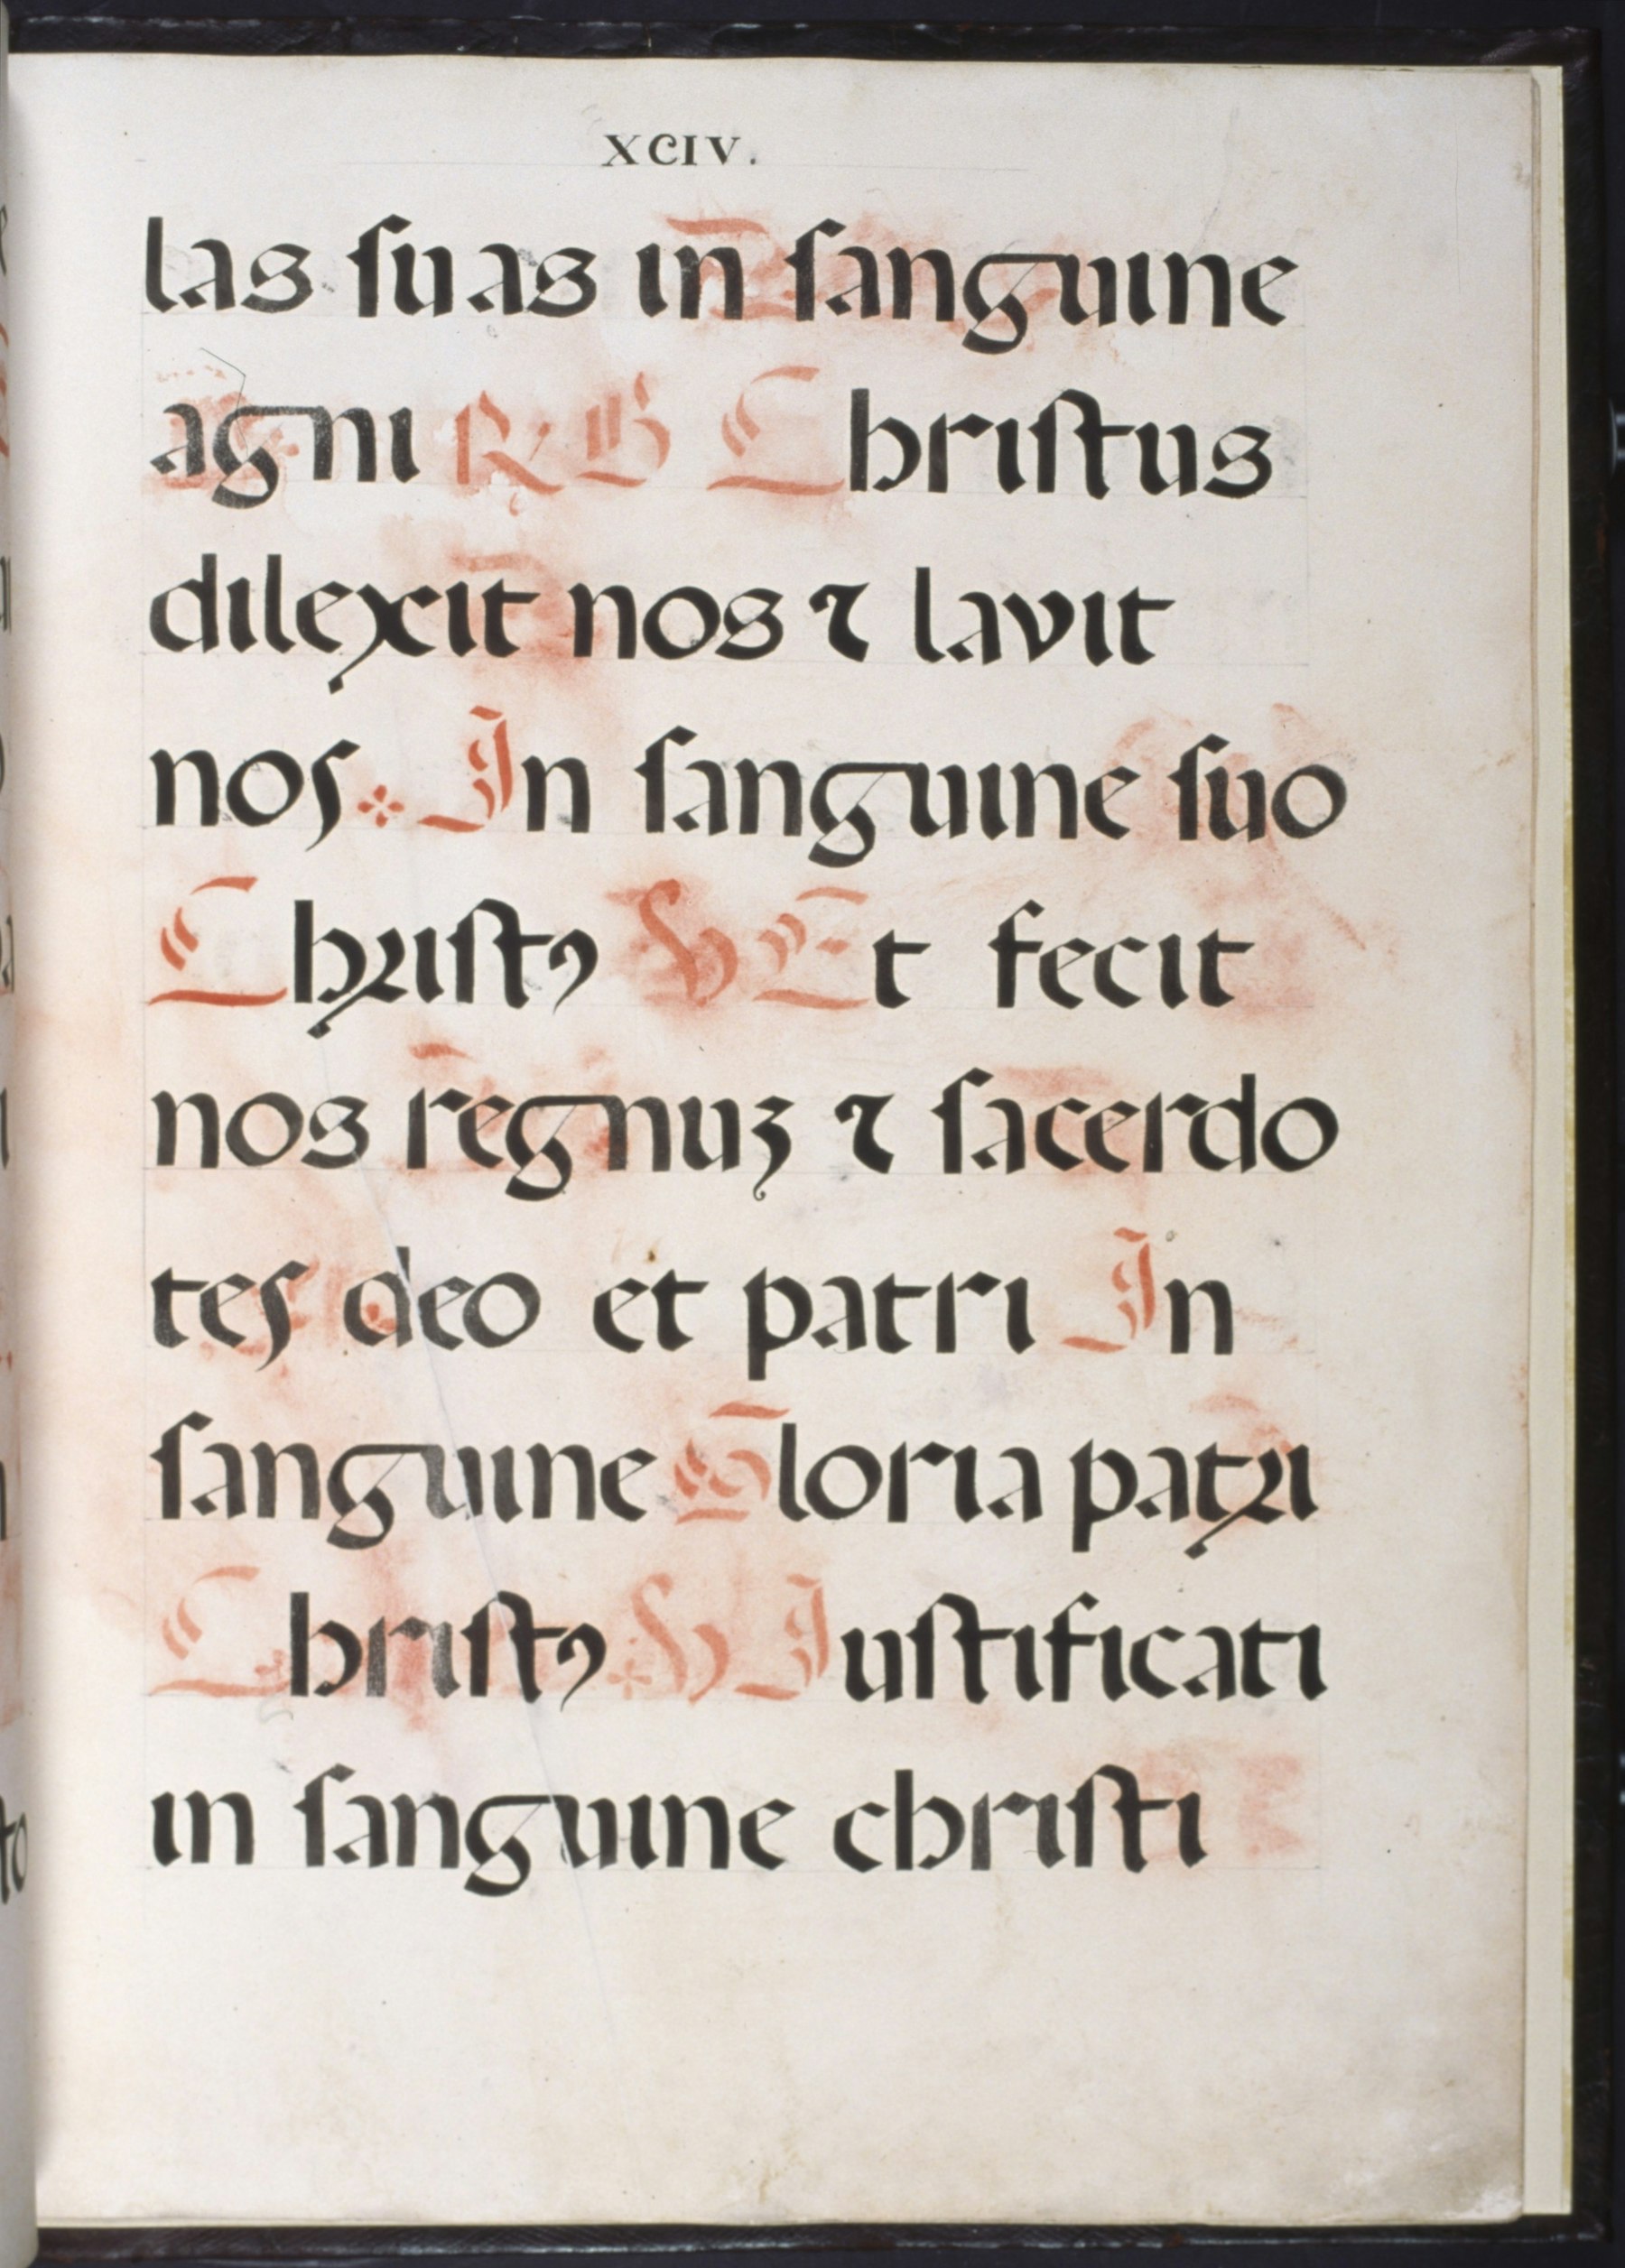 XCIV.
las ſuas in ſanguine
agni R B Chriſtus
dilexit nos ⁊ lavit
nos In ſanguine ſuo
Chꝛiſtꝰ V Et fecit
nos regnuꝫ ⁊ ſacerdo
tes deo et patri In
ſanguine Gloria patꝛi
Chriſtꝰ V Juſtificati
in ſanguine chriſti